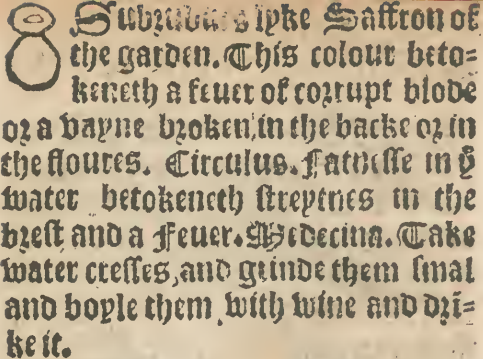 8 Subrubius lyke Saffron of
the garden. This colour beto=
keneth a feuer of corrupt blode
or a vayne broken, in the backe or in
the floures. Circulus. Fatnesse in yͤ
water betokeneth streytnes in the
brest and a Feuer. Medecina. Take
water cresses, and grinde them smal
and boyle them, with wine and dri=
ke it.